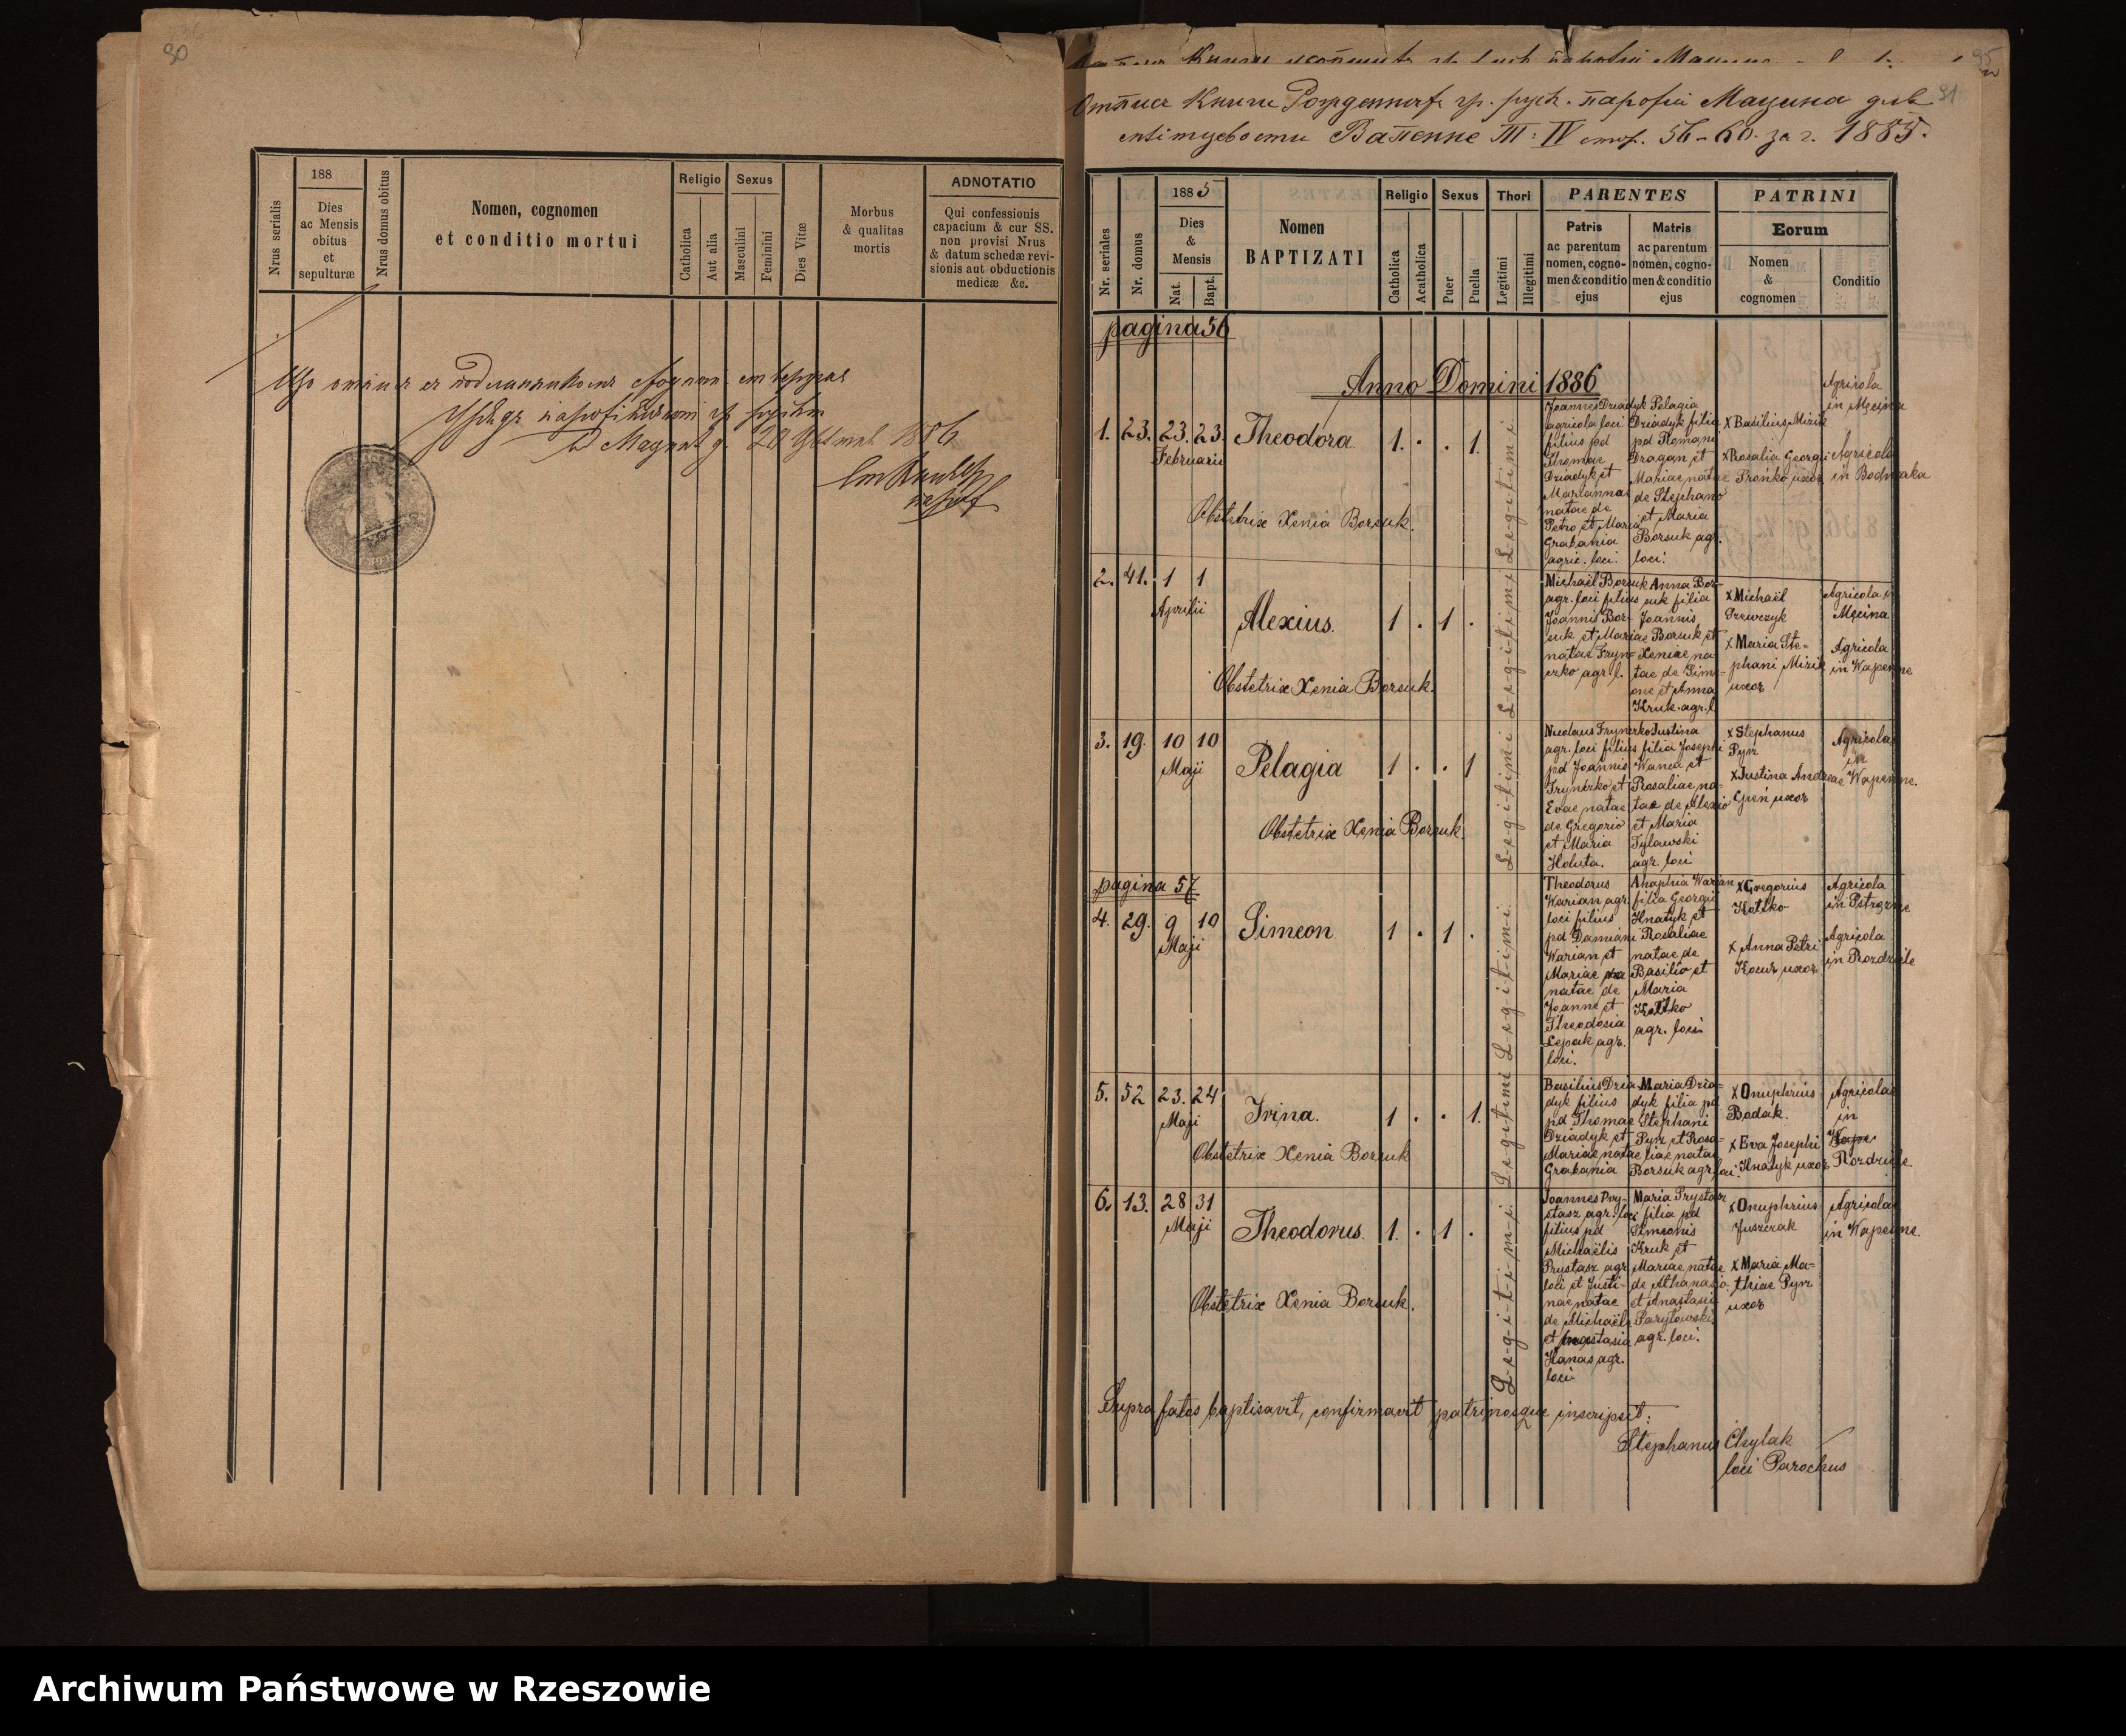 90
Nrus serialis
188
Dies
ac Mensis
obitus
et
sepulturæ
Nrus domus obitus
Nomen, cognomen
et conditio mortui
Religio
Catholica
Aut alia
Sexus
Masculini
Feminini
Dies Vitæ
Morbus
& qualitas
mortis
ADNOTATIO
Qui confessionis
capacium & cur SS.
non provisi Nrus
& datum schedæ revi-
sionis aut obductionis
medicæ &c.
1886
95
91
Отпись Книги парофіи Мацина для
Вапенне III: IV стор. 56-60. за г. 1885.
Nr. seriales
Nr. domus
1885
Dies
&
Mensis
Nat.
Bapt.
Nomen
BAPTIZATI
Religio
Catholica
Acatholica
Sexus
Puer
Puella
Thori
Legitimi
Illegitimi
PARENTES
Patris
ac parentum
nomen, cogno-
men & conditio
ejus
Matris
ac parentum
nomen, cogno-
men & conditio
ejus
PATRINI
Eorum
Nomen
&
cognomen
Conditio
pagina 56
Anno Domini 1886
1. 23. 23. 23. Theodora 1. . . 1.
Februarii
Legitimi
Joannes Dziadyk
agricola loci
filius pd
Thomae
Dziadyk et
Mariannae
natae de
Petro et Maria
Grabania
agric. loci.
Pelagia
Dziadyk filia
pd Romani
Dragan et
Mariae natae
de Stephano
et Maria
Borsuk agr.
loci.
x Basilius Mizik
x Rosalia Georgii
Prońko uxor
Agricola
in Męcina
Agricola
in Bodnarka
Obstetrix Xenia Borsuk.
2. 41. 1 1 Alexius. 1 . 1 .
Aprilii
Legitimi
Michaël Borsuk
agr. loci filius
Joannis Bor-
suk et Mariae
natae Fryn-
czko agr. l.
Anna Bor-
suk filia
Joannis
Borsuk et
Xeniae na-
tae de Sim-
one et Anna
Kruk agr. l.
x Michaël
Szewczyk
x Maria Ste-
phani Mizik
uxor
Agricola
Męcina
Agricola
in Wapenne
Obstetrix Xenia Borsuk.
3. 19. 10 10 Pelagia 1 . . 1
Maji
Legitimi
Nicolaus Frynczko
agr. loci filius
pd Joannis
Frynczko et
Evae natae
de Gregorio
et Maria
Holuta.
Justina
filia Josephi
Wanca et
Rosaliae na-
tae de Alexio
et Maria
Tylawski
agr. loci
x Stephanus
Pyrz
x Justina Andreae
Gpeń uxor
Agricolae
in
Wapenne.
Obstetrix Xenia Borsuk.
pagina 57
4. 29. 9 10 Simeon 1 . 1 .
Maji
Legitimi
Theodorus
Warian agr.
loci filius
pd Damiani
Warian et
Mariae
natae de
Joanne et
Theodosia
Lepak agr.
loci.
Ahaphia Warian
filia Georgii
Hnatyk et
Rosaliae
natae de
Basilio et
Maria
Kotlko
agr. loci
x Gregorius
Kotlko
x Anna Petri
Kocur uxor
Agricola
in Pętrzne
Agricola
in Rozdziele
5. 52 23. 24 Irina. 1 . . 1.
Maji
Legitimi
Basilius Dzia-
dyk filius
pd Thomae
Dziadyk et
Mariae natae
Grabania
Maria Dzia-
dyk filia pd
Stephani
Pyrz et Rosa-
liae natae
Borsuk agr. loci.
x Onuphrius
Bodak.
x Eva Josephi
Hnatyk uxor
Agricolae
in
Rozdziele.
Obstetrix Xenia Borsuk
6. 13. 28 31 Theodorus. 1. . 1 .
Maji
Legitimi
Joannes Pry-
stasz agr. loci
filius pd
Michaëlis
Prystasz agr.
loci et Justi-
nae natae
de Michaële
et Anastasia
Hanas agr.
loci
Maria Prystasz
filia pd
Simeonis
Kruk et
Mariae natae
de Athanasio
et Anastasia
Parylowski
agr. loci.
x Onuphrius
Juszczak
x Maria Ma-
thiae Pyrz
uxor
Agricolae
in Wapenne.
Obstetrix Xenia Borsuk.
Supra fatos baptisavit, confirmavit patrinosque inscripsit:
Stephanus Chylak
loci Parochus
Archiwum Państwowe w Rzeszowie